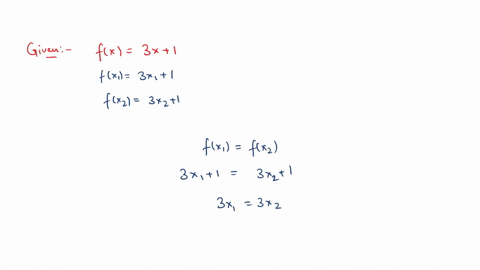 Given:- f(x) = 3x+1
f(x₁) = 3x₁+1
f(x₂) = 3x₂+1
f(x₁) = f(x₂)
3x₁+1 = 3x₂+1
3x₁ = 3x₂